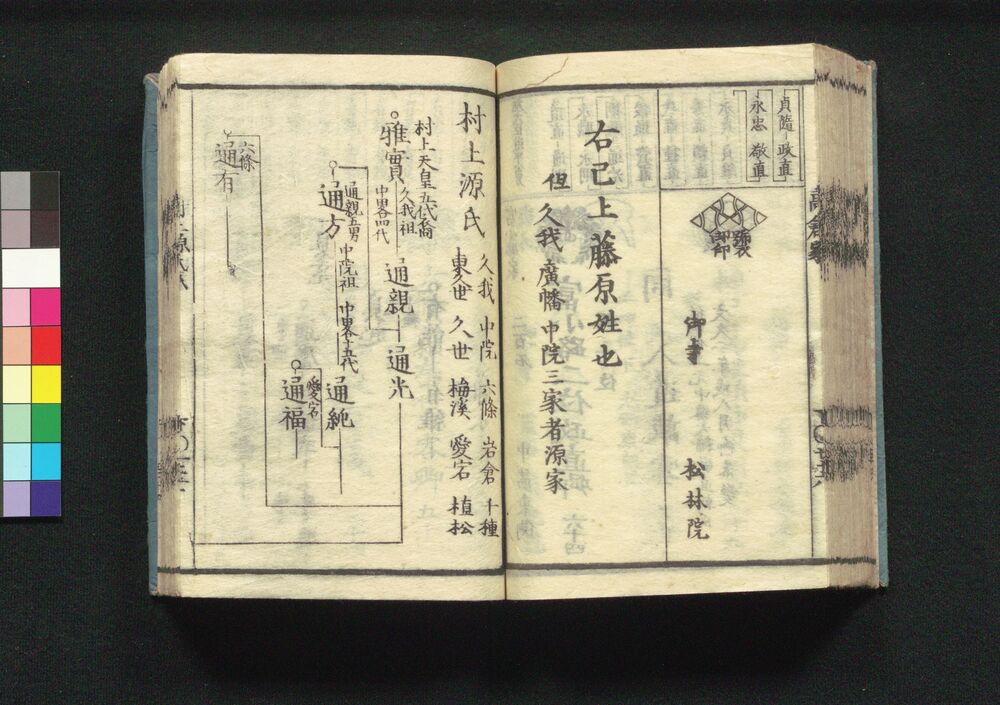 貞隨 政直
永忠 敬直
御寺 松林院
右己上藤原姓也
但 久我 廣幡 中院三家者源家
村上源氏
久我 中院 六條 岩倉 千種
東久世 久世 梅溪 愛宕 植松
村上天皇五代裔
久我祖
中畧四代
雅實
通親
通光
通親五男
中院祖
中畧十五代
通方
通純
愛宕
通福
六條
通有